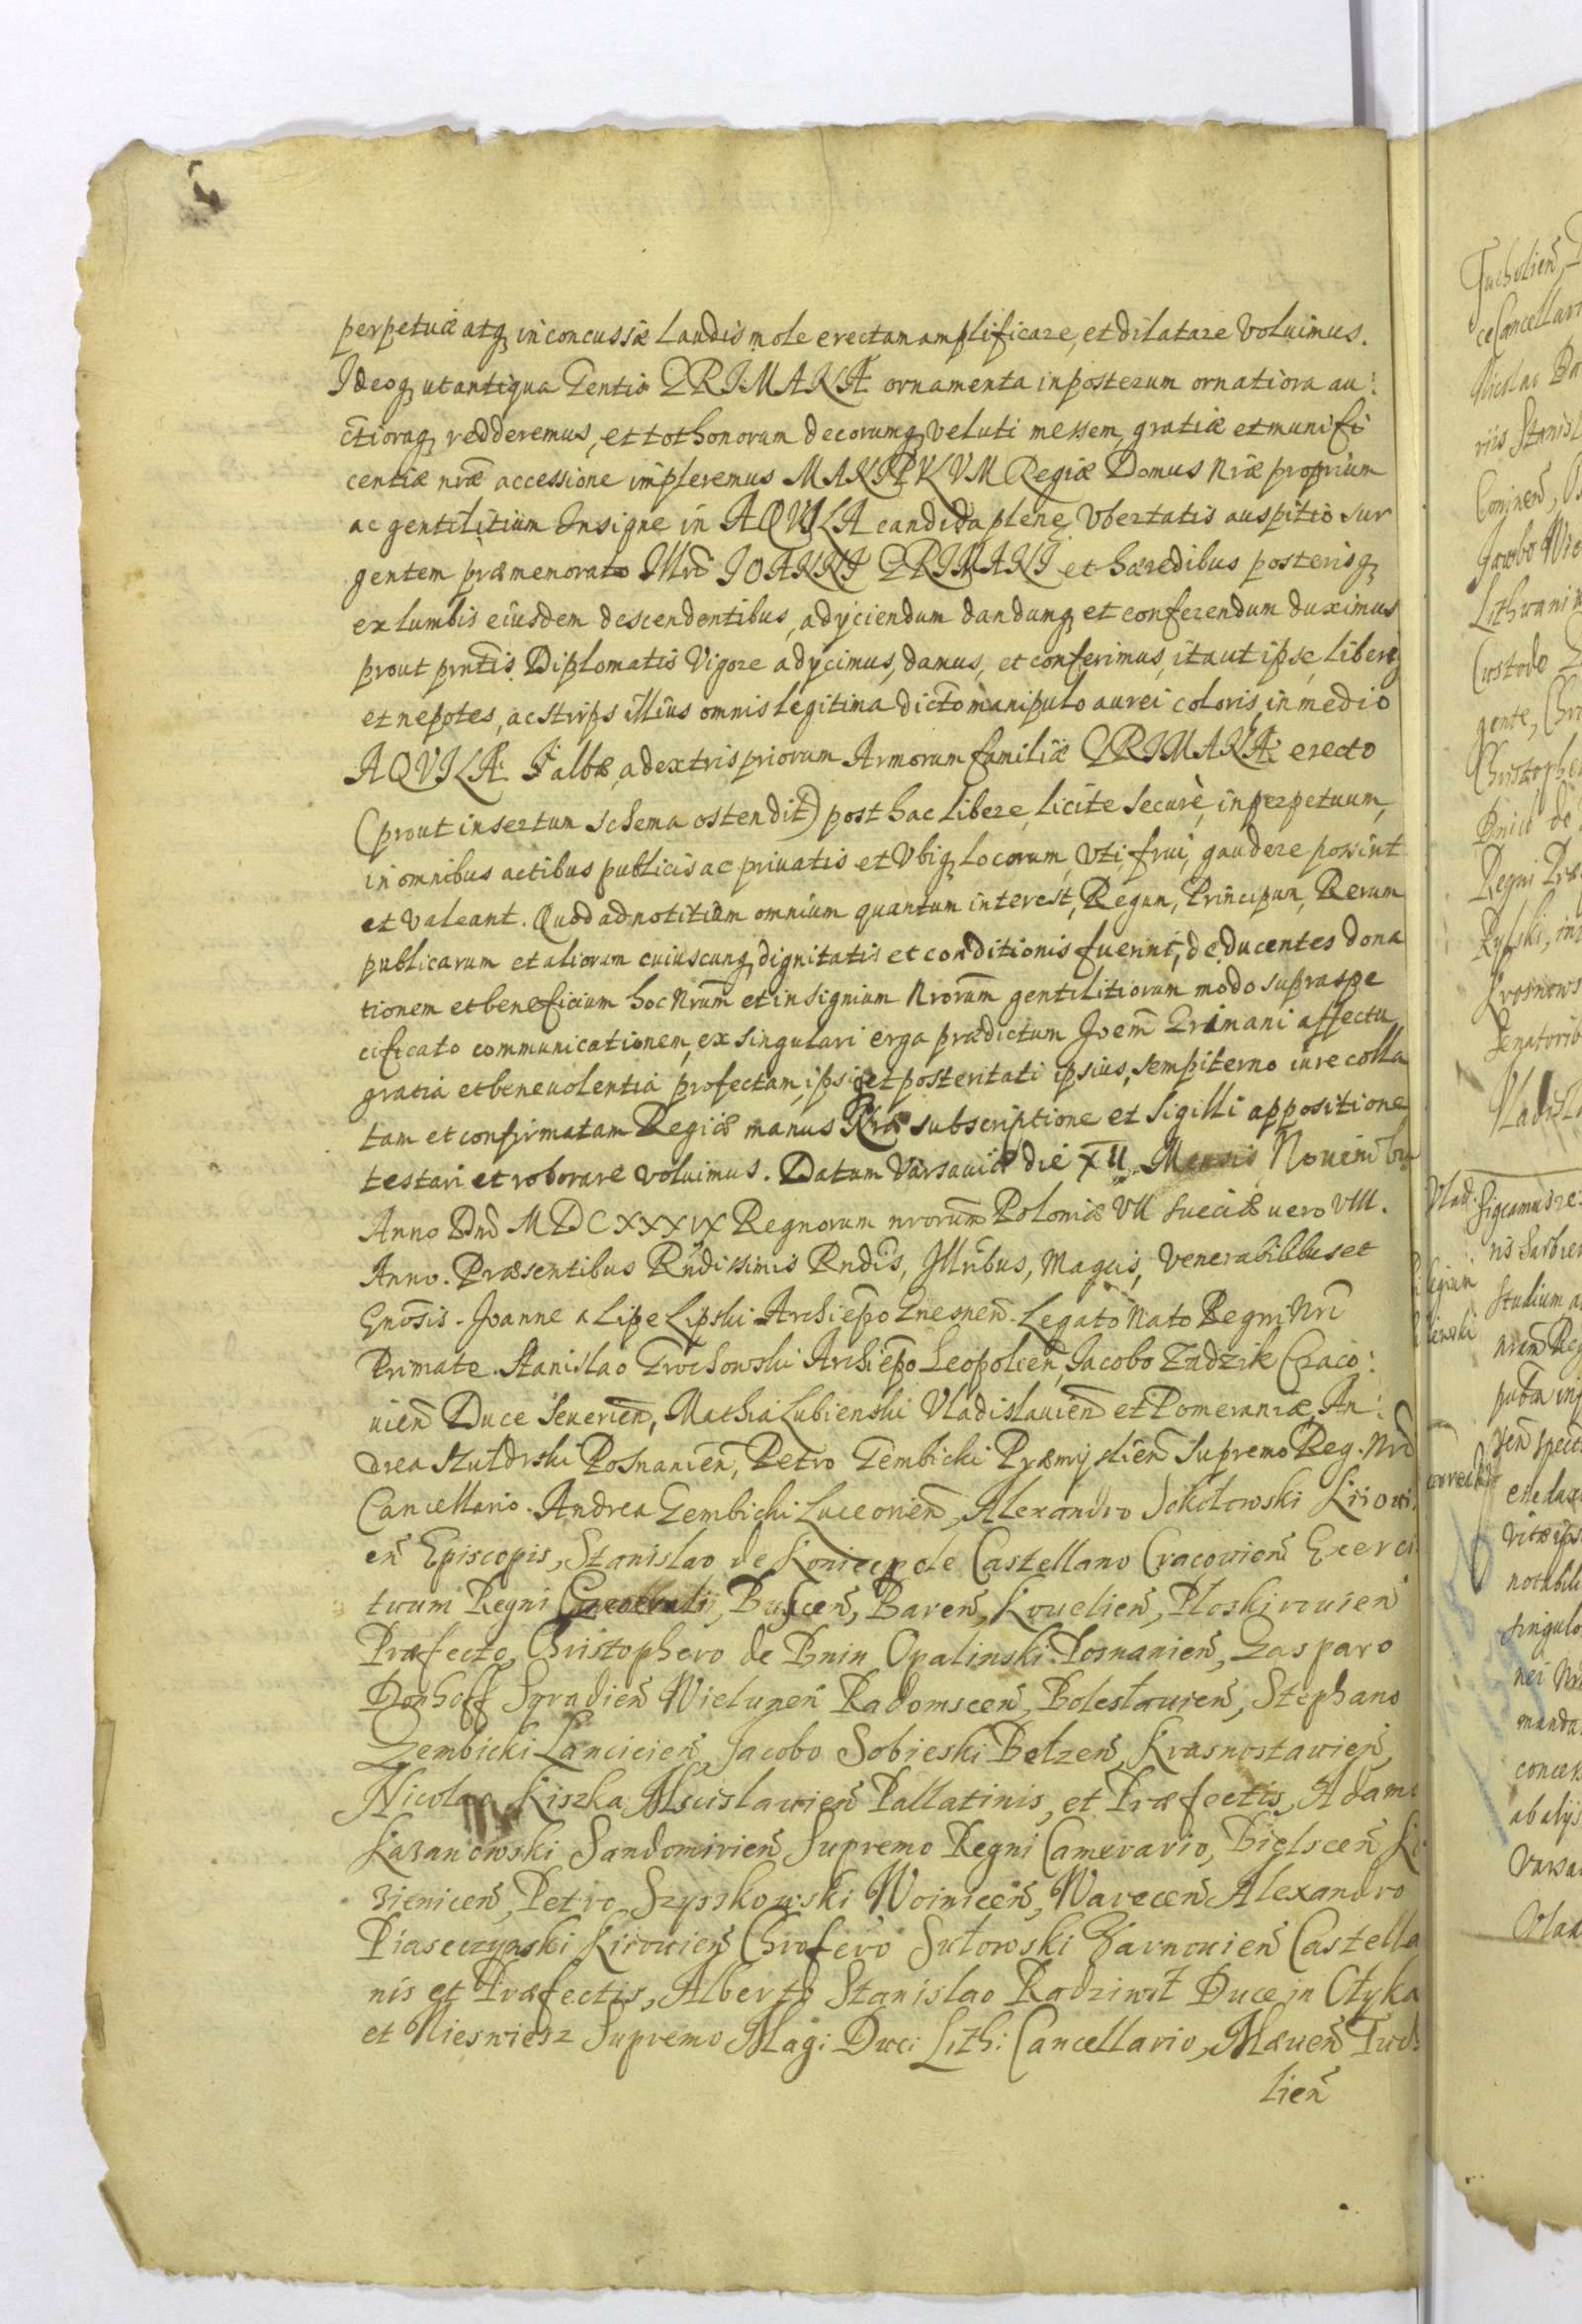 perpetuæ atq inconcussæ laudis mole erectam amplificare, et dilatare voluimus.
Ideoq ut antiqua Gentis GRIMANÆ ornamenta in posterum ornatiora au:
ctioraq redderemus, et tot honorum decorumq veluti messem gratiæ et munifi
centiæ nræ accessione impleremus MANIPVLVM Regiæ Domus Nræ proprium
ac gentilitium Insigne in AQVILA candida plenę Vbertatis auspitio sur
gentem præmenorato Illri IOANNI GRIMANI et hæredibus posterisq
ex lumbis eiusdem descendentibus, adyciendum dandumq et conferendum duximus
prout pñtis Diplomatis Vigore adycimus, damus, et conferimus, ita ut ipse, liberiq
et nepotes, ac stirps illius omnis legitima dicto manipulo aurei coloris, in medio
AQVILÆ albæ, a dextris priorum Armorum familiæ GRIMANÆ erecto
(prout insertum schema ostendit) post hac libere, licite secure, in perpetuum,
in omnibus actibus publicis ac priuatis et Vbiq locorum, Vti, frui, gaudere possint
et valeant. Quod ad notitiam omnium quantum interest, Regum, Principum, Rerum
publicarum et aliorum cuiuscunq dignitatis et conditionis fuerint, deducentes dona
tionem et beneficium hoc Nrum et insignium Nrorum gentilitiorum modo supraspe
cificato communicationem, ex singulari erga prædictum Joem Grimani affectu
gratia et beneuolentia profectam, ipsi et posteritati ipsius, sempiterno iure colla
tam et confirmatam Regiæ manus Nræ subscriptione et sigilli appositione
testari et roborare voluimus. Datum Varsauiæ die XII Mensis Nouembr
Anno Dni MDCXXXIX Regnorum nrorum Poloniæ VII Sueciæ uero VIII.
Anno. Præsentibus Rndissimis Rndis, Illribus, Magcis, Venerabilibus et
Gnosis. Joanne a Lipe Lipski Archiepo Gnesnen. Legato Nato Regni Nri
Primate. Stanislao Grochowski Archiepo Leopolien, Jacobo Zadzik Craco:
uien Duce Seuerien, Mathia Lubienski Vladislauien et Pomeraniæ, An:
drea Szuldrski Posnanien, Petro Gembicki Præmyslien Supremo Reg. Nri
Cancellario. Andrea Gembicki Luceorien, Alexandro Sokolowski Kiioui
en Episcopis, Stanislao de Koniecpole Castellano Cracouien Exerci
tuum Regni Generali, Buscen, Baren, Kouelien, Ploskirouien
Præfecto, Christophero de Bnin Opalinski Posnanien, Gasparo
Donhoff Syradien Wielunen Radomscen, Boleslauien, Stephano
Gembicki Lancicien, Jacobo Sobieski Belzen, Krasnostauien,
Nicolao Kiszka Mscislauien Pallatinis, et Præfectis, Adamo
Kazanowski Sandomirien Supremo Regni Camerario, Bielscen Ko
zienicen, Petro Szyszkowski Woinicen, Warecen Alexandro
Piaseczynski Kiiouien Chrofero Sulowski Zarnouien Castella
nis et Præfectis, Alberto Stanislao Radziwil Duce in Olyka
et Nieswiesz Supremo Mag: Duci Lith: Cancellario, Mæuen Tuch
lien